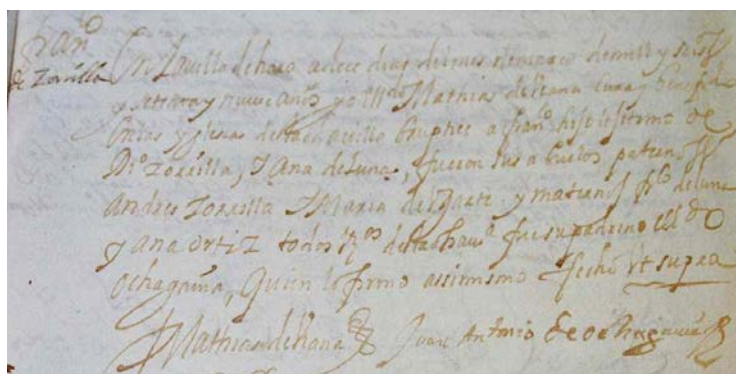 Fran^co
de Zorrilla
En la villa de haro a doce dias del mes de março de mill y seis^s
y setenta y nueve años yo el l^do Mathias de llana Cura y Benefi^do
en las yglesias desta d^ha villa Baptice a fran^co hijo lejitimo de
D^o Zorrilla, y Ana de luna, fueron sus abuelos paternos
Andres Zorrilla y Maria del y maternos fr^co de luna
y Ana Ortiz todos v^os desta d^ha v^a fue su padrino el l^do
ochagavia, quien lo firmo assimismo fecho Vt supra
Mathias de llana Juan Antonio de ochagavia